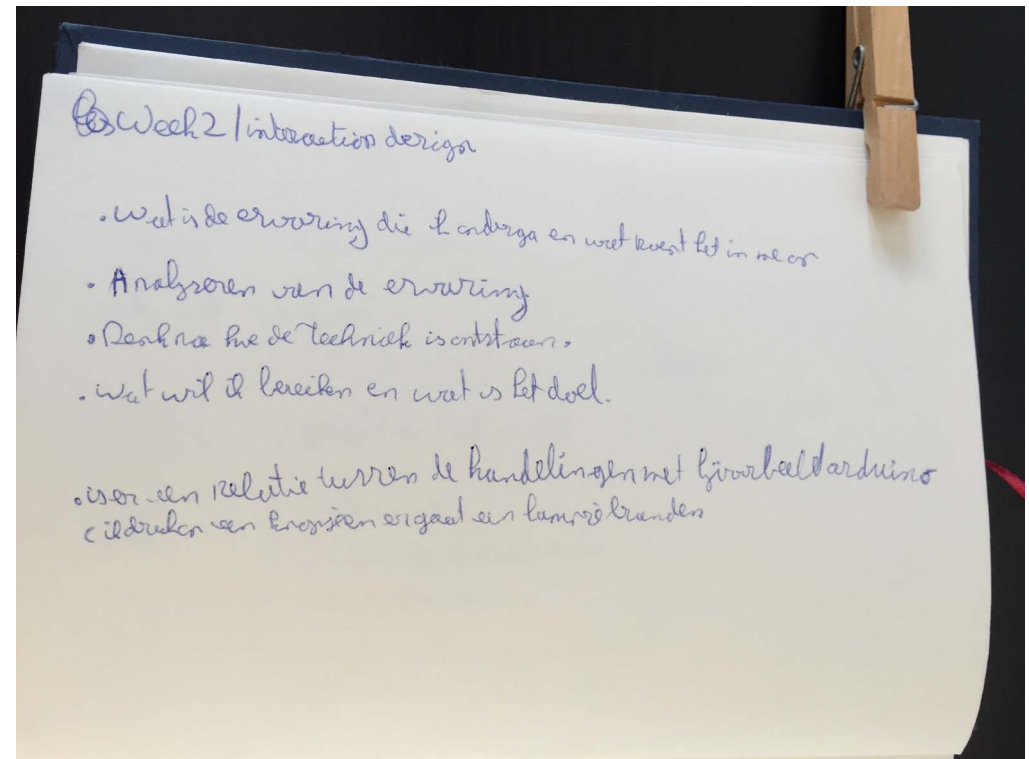 Les Week 2 | interaction design
• Wat is de ervaring die ik onderga en wat roept het in me op
• Analyseren van de ervaring
• Denk na hoe de techniek is ontstaan.
• wat wil ik bereiken en wat is het doel.
• is er een relatie tussen de handelingen met bijvoorbeeld arduino
( ik druk een knopje en er gaat een lampje branden